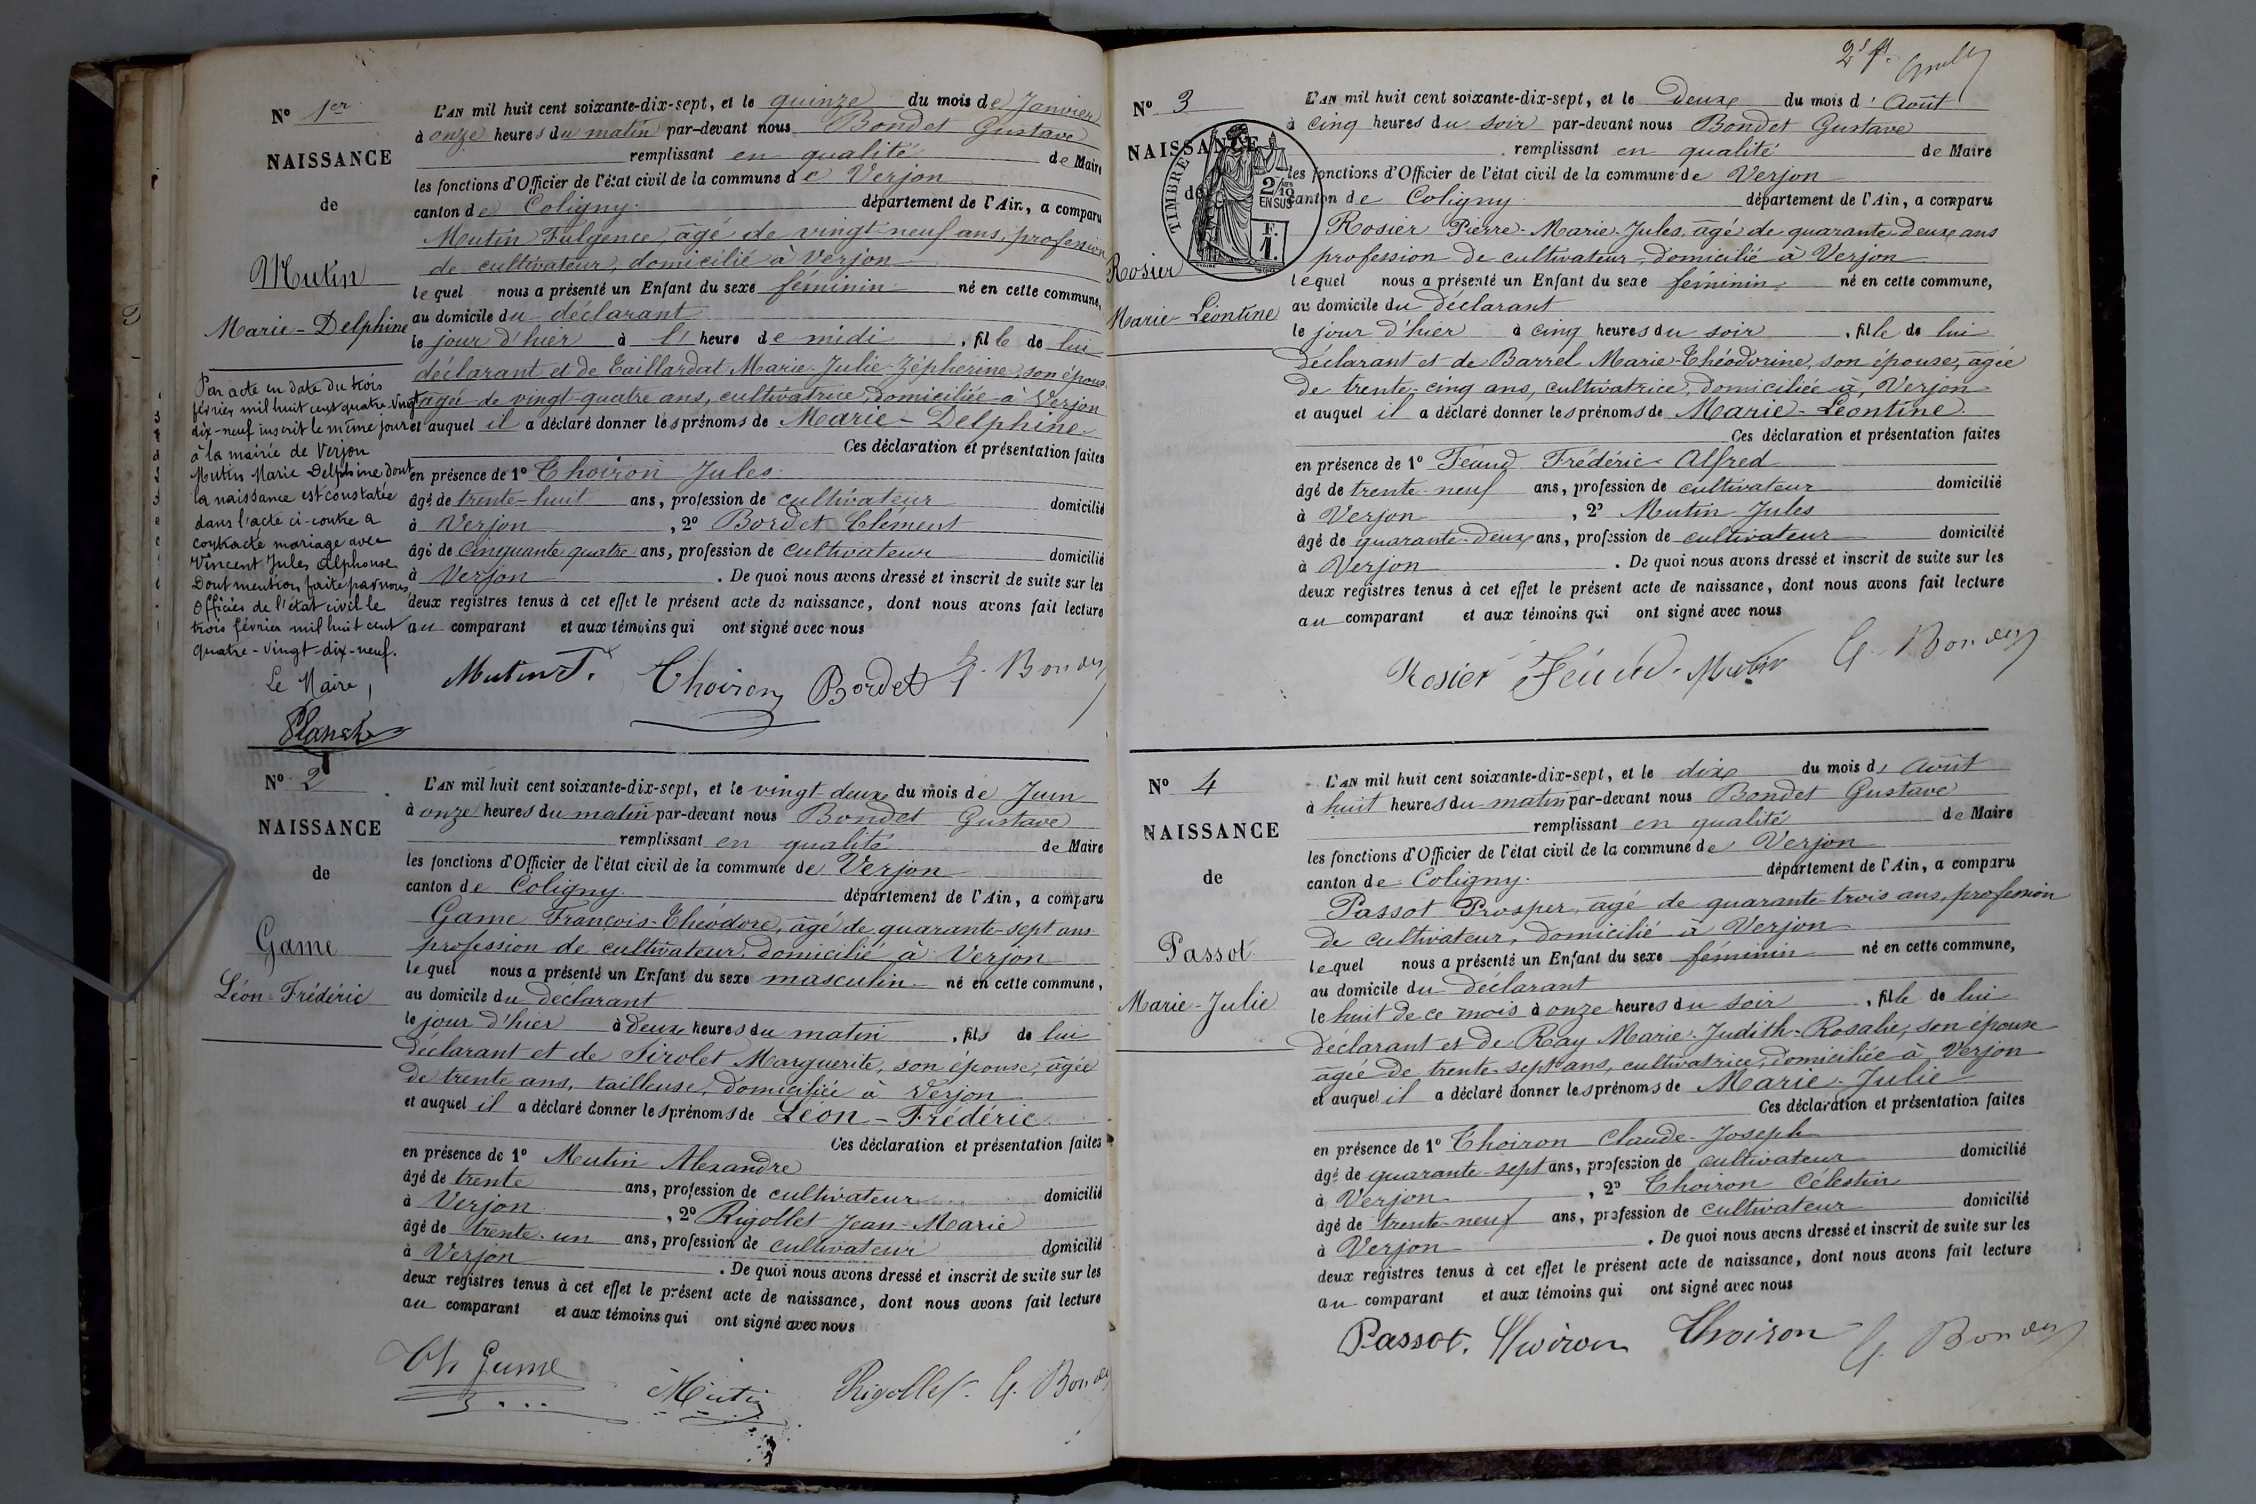 N° 1er
NAISSANCE
de
Mutin
Marie-Delphine
Par acte en date du trois
février mil huit cent quatre-vingt
dix-neuf inscrit le même jour
à la mairie de Verjon
Mutin Marie Delphine dont
la naissance est constatée
dans l'acte ci-contre a
contracté mariage avec
Vincent Jules Alphonse
Dont mention faite par nous
Officier de l'état civil le
trois février mil huit cent
quatre-vingt-dix-neuf.
Le Maire,
L'AN mil huit cent soixante-dix-sept, et le quinze du mois de Janvier
à onze heures du matin par-devant nous Bondet Gustave
remplissant en qualité de Maire
les fonctions d'Officier de l'état civil de la commune de Verjon
canton de Coligny département de l'Ain, a comparu
Mutin Fulgence, âgé de vingt-neuf ans, profession
de cultivateur, domicilié à Verjon
lequel nous a présenté un Enfant du sexe féminin né en cette commune,
au domicile du déclarant
le jour d'hier à l' heure de midi, fille de lui
déclarant et de Taillardat Marie-Julie-Zépherine, son épouse,
agée de vingt-quatre ans, cultivatrice, domiciliée à Verjon
et auquel il a déclaré donner les prénoms de Marie-Delphine.
Ces déclaration et présentation faites
en présence de 1° Thoiron Jules
âgé de trente-huit ans, profession de cultivateur domicilié
à Verjon, 2° Bordet Clément
âgé de Cinquante quatre ans, profession de cultivateur domicilié
à Verjon. De quoi nous avons dressé et inscrit de suite sur les
deux registres tenus à cet effet le présent acte de naissance, dont nous avons fait lecture
au comparant et aux témoins qui ont signé avec nous
Mutin F. Thoiron Bordet G. Bondet
N° 2
NAISSANCE
de
Game
Léon-Frédéric
L'AN mil huit cent soixante-dix-sept, et le vingt-deux du mois de Juin
à onze heures du matin par-devant nous Bondet Gustave
remplissant en qualité de Maire
les fonctions d'Officier de l'état civil de la commune de Verjon
canton de Coligny département de l'Ain, a comparu
Game François-Théodore, âgé de quarante-sept ans
profession de cultivateur, domicilié à Verjon
lequel nous a présenté un Enfant du sexe masculin né en cette commune,
au domicile du déclarant
le jour d'hier à deux heures du matin, fils de lui
déclarant et de Sirolet Marguerite, son épouse, âgée
de trente ans, tailleuse, domiciliée à Verjon
et auquel il a déclaré donner les prénoms de Léon-Frédéric
Ces déclaration et présentation faites
en présence de 1° Mutin Alexandre
âgé de trente ans, profession de cultivateur domicilié
à Verjon, 2° Rigollet Jean-Marie
âgé de trente-un ans, profession de cultivateur domicilié
à Verjon. De quoi nous avons dressé et inscrit de suite sur les
deux registres tenus à cet effet le présent acte de naissance, dont nous avons fait lecture
au comparant et aux témoins qui ont signé avec nous
Th Game Mutin Rigollet G. Bondet
2e f.
N° 3
NAISSANCE
de
TIMBRE
2/10
EN SUS
F.
1.
Rosier
Marie-Léontine
L'AN mil huit cent soixante-dix-sept, et le deux du mois d'Août
à cinq heures du soir par-devant nous Bondet Gustave
remplissant en qualité de Maire
les fonctions d'Officier de l'état civil de la commune de Verjon
canton de Coligny département de l'Ain, a comparu
Rosier Pierre-Marie-Jules, âgé de quarante-deux ans
profession de cultivateur, domicilié à Verjon
lequel nous a présenté un Enfant du sexe féminin né en cette commune,
au domicile du déclarant
le jour d'hier à cinq heures du soir, fille de lui
déclarant et de Barrel Marie-Théodorine, son épouse, agée
de trente-cinq ans, cultivatrice, domiciliée à Verjon
et auquel il a déclaré donner les prénoms de Marie-Léontine
Ces déclaration et présentation faites
en présence de 1° Féaud Frédéric Alfred
âgé de trente-neuf ans, profession de cultivateur domicilié
à Verjon, 2° Mutin Jules
âgé de quarante-deux ans, profession de cultivateur domicilié
à Verjon. De quoi nous avons dressé et inscrit de suite sur les
deux registres tenus à cet effet le présent acte de naissance, dont nous avons fait lecture
au comparant et aux témoins qui ont signé avec nous
Rosier Féaud Mutin G. Bondet
N° 4
NAISSANCE
de
Passot
Marie-Julie
L'AN mil huit cent soixante-dix-sept, et le dix du mois d'Août
à huit heures du matin par-devant nous Bondet Gustave
remplissant en qualité de Maire
les fonctions d'Officier de l'état civil de la commune de Verjon
canton de Coligny département de l'Ain, a comparu
Passot Prosper, âgé de quarante-trois ans, profession
de cultivateur, domicilié à Verjon
lequel nous a présenté un Enfant du sexe féminin né en cette commune,
au domicile du déclarant
le huit de ce mois à onze heures du soir, fille de lui
déclarant et de Ray Marie-Judith-Rosalie, son épouse
âgée de trente-sept ans, cultivatrice, domiciliée à Verjon
et auquel il a déclaré donner les prénoms de Marie-Julie
Ces déclaration et présentation faites
en présence de 1° Thoiron Claude-Joseph
âgé de quarante-sept ans, profession de cultivateur domicilié
à Verjon, 2° Thoiron Célestin
âgé de trente-neuf ans, profession de cultivateur domicilié
à Verjon. De quoi nous avons dressé et inscrit de suite sur les
deux registres tenus à cet effet le présent acte de naissance, dont nous avons fait lecture
au comparant et aux témoins qui ont signé avec nous
Passot. Thoiron Thoiron G. Bondet